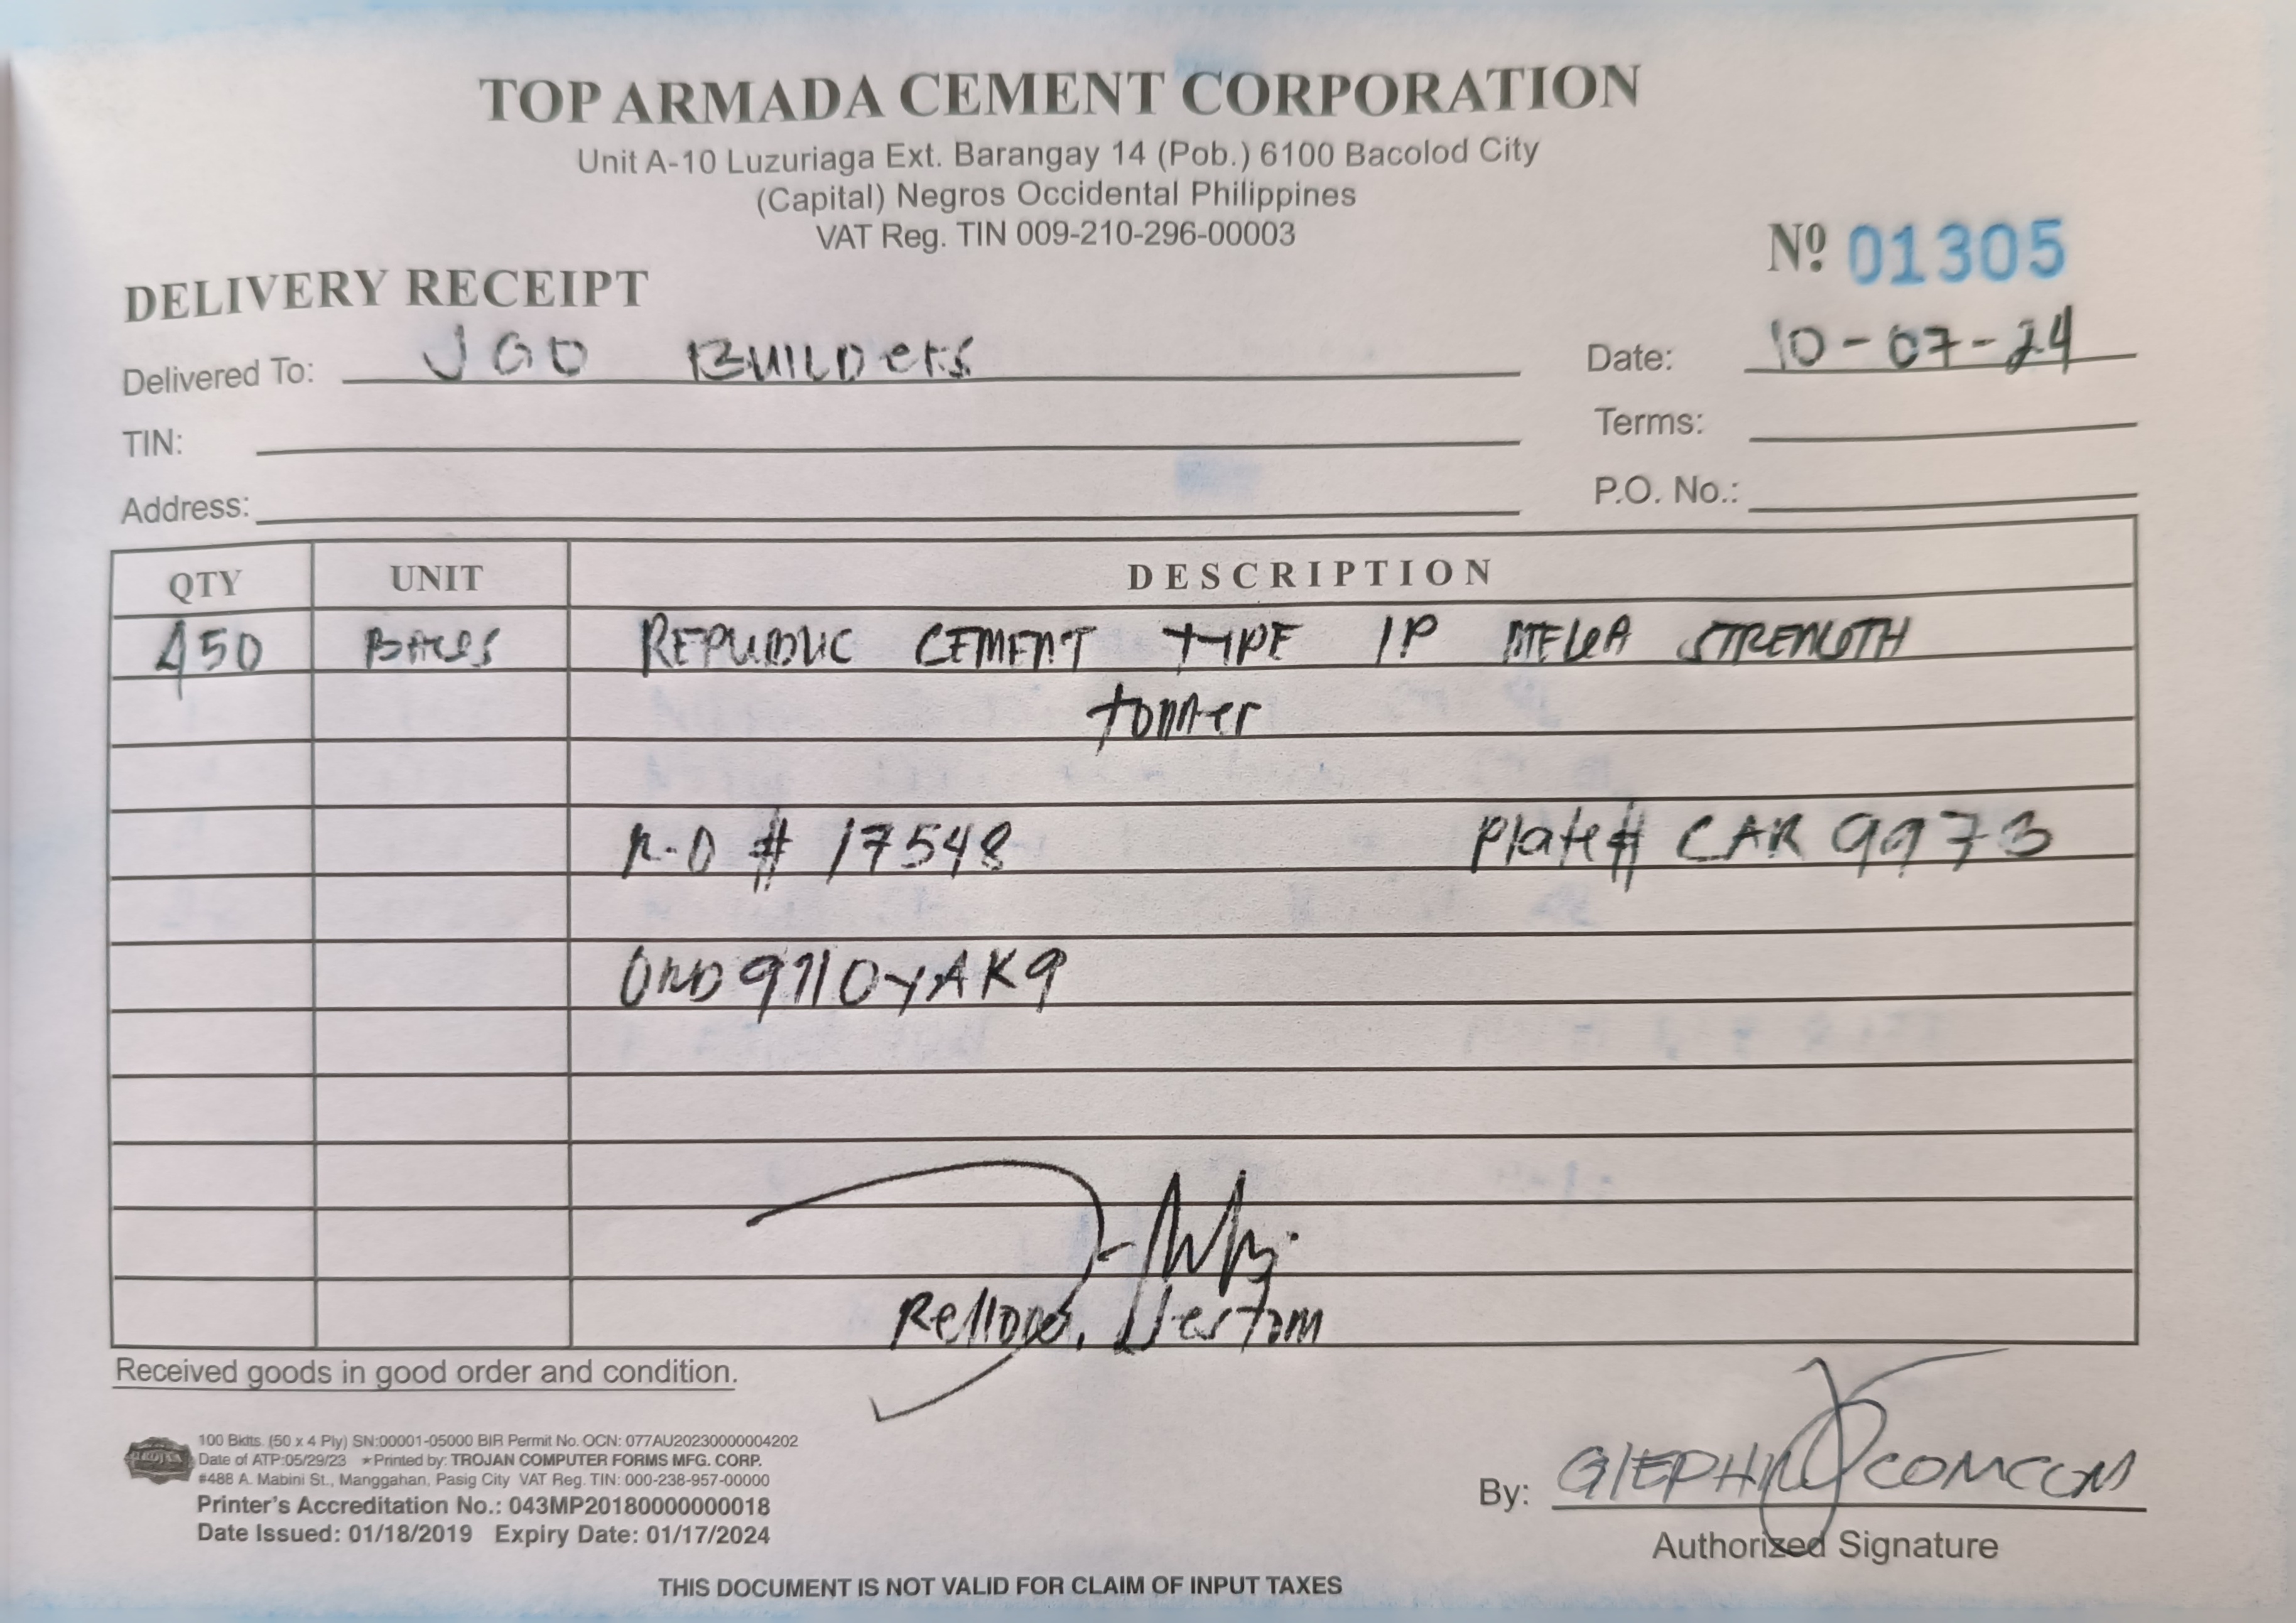 TOP ARMADA CEMENT CORPORATION
Unit A-10 Luzuriaga Ext. Barangay 14 (Pob.) 6100 Bacolod City
(Capital) Negros Occidental Philippines
VAT Reg. TIN 009-210-296-00003
Nº 01305
DELIVERY RECEIPT
Delivered To: JGD BUILDERS
Date: 10-07-24
TIN:
Terms:
Address:
P.O. No.:
QTY UNIT DESCRIPTION
450 BAGS REPUBLIC CEMENT TYPE 1P MEGA STRENGTH
tonner
# 17548 Plate# CAR 9973
9710YAK9
Nestom
Received goods in good order and condition.
100 Bklts. (50 x 4 Ply) SN:00001-05000 BIR Permit No. OCN: 077AU20230000004202
Date of ATP:05/29/23 ★Printed by: TROJAN COMPUTER FORMS MFG. CORP.
#488 A. Mabini St., Manggahan, Pasig City VAT Reg. TIN: 000-238-957-00000
Printer's Accreditation No.: 043MP20180000000018
Date Issued: 01/18/2019 Expiry Date: 01/17/2024
By:
Authorized Signature
THIS DOCUMENT IS NOT VALID FOR CLAIM OF INPUT TAXES